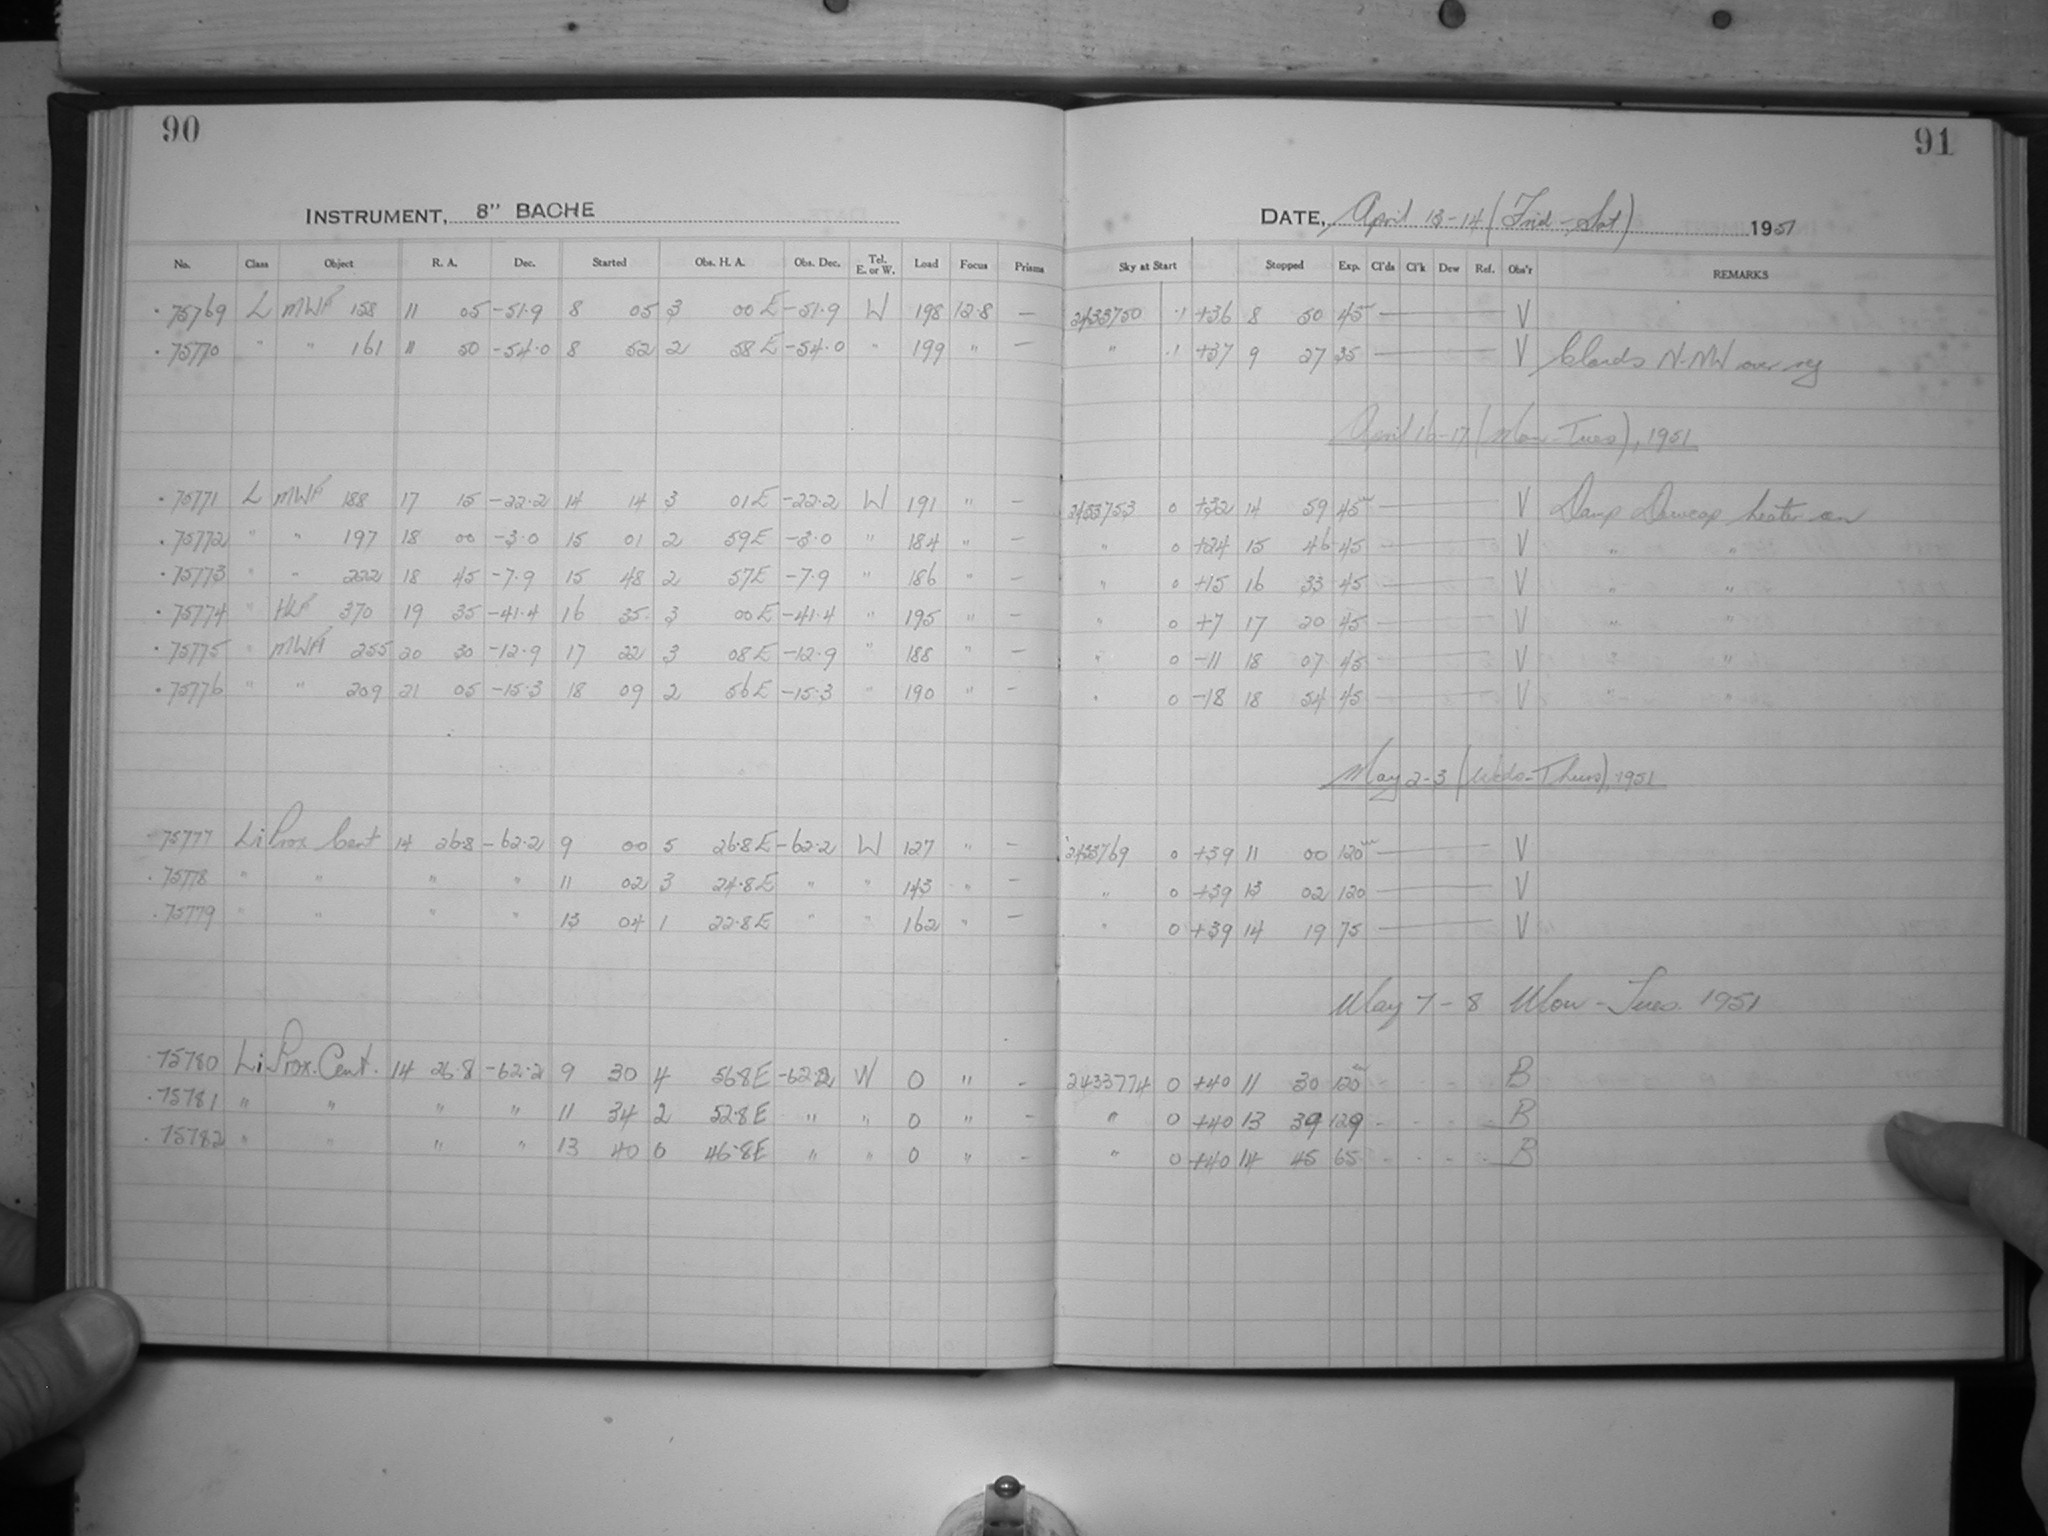 90
91
INSTRUMENT, 8" BACHE
DATE, April 13-14 (Frid-Sat) 1951
No. Class Object R. A. Dec. Started Obs. H. A. Obs. Dec. Tel. E. or W. Load Focus Prisms Sky at Start Stopped Exp. Cl'ds Cl'k Dew Ref. Obs'r REMARKS
75769 L MWF 158 11 05 -51.9 8 05 3 00 E -51.9 W 198 12.8 — 2433750 .1 +36 8 50 45m V
75770 " " 161 11 50 -54.0 8 52 2 58 E -54.0 " 199 " — " .1 +37 9 27 35 V Clouds N-NW over
April 16-17 (Mon-Tues), 1951
75771 L MWF 188 17 15 -22.2 14 14 3 01 E -22.2 W 191 " — 2433753 0 +32 14 59 45m V Damp Dewcap heater on
75772 " " 197 18 00 -3.0 15 01 2 59 E -3.0 " 184 " — " 0 +24 15 46 45 V " "
75773 " " 222 18 45 -7.9 15 48 2 57 E -7.9 " 186 " — " 0 +15 16 33 45 V " "
75774 " HLF 370 19 35 -41.4 16 35 3 00 E -41.4 " 195 " — " 0 +7 17 20 45 V " "
75775 " MWF 255 20 30 -12.9 17 22 3 08 E -12.9 " 188 " — " 0 -11 18 07 45 V " "
75776 " " 209 21 05 -15.3 18 09 2 56 E -15.3 " 190 " — " 0 -18 18 54 45 V " "
May 2-3 (Weds-Thurs), 1951
75777 Li Prox Cent 14 26.8 -62.2 9 00 5 26.8 E -62.2 W 127 " — 2433769 0 +39 11 00 120m V
75778 " " " " 11 02 3 24.8 E " " 143 " — " 0 +39 13 02 120 V
75779 " " " " 13 04 1 22.8 E " " 162 " — " 0 +39 14 19 75 V
May 7-8 Mon-Tues. 1951
75780 Li Prox. Cent. 14 26.8 -62.2 9 30 4 56.8 E -62.2 W 0 " - 2433774 0 +40 11 30 120m B
75781 " " " " 11 34 2 52.8 E " " 0 " - " 0 +40 13 39 129 B
75782 " " " " 13 40 0 46.8 E " " 0 " - " 0 +40 14 45 65 B